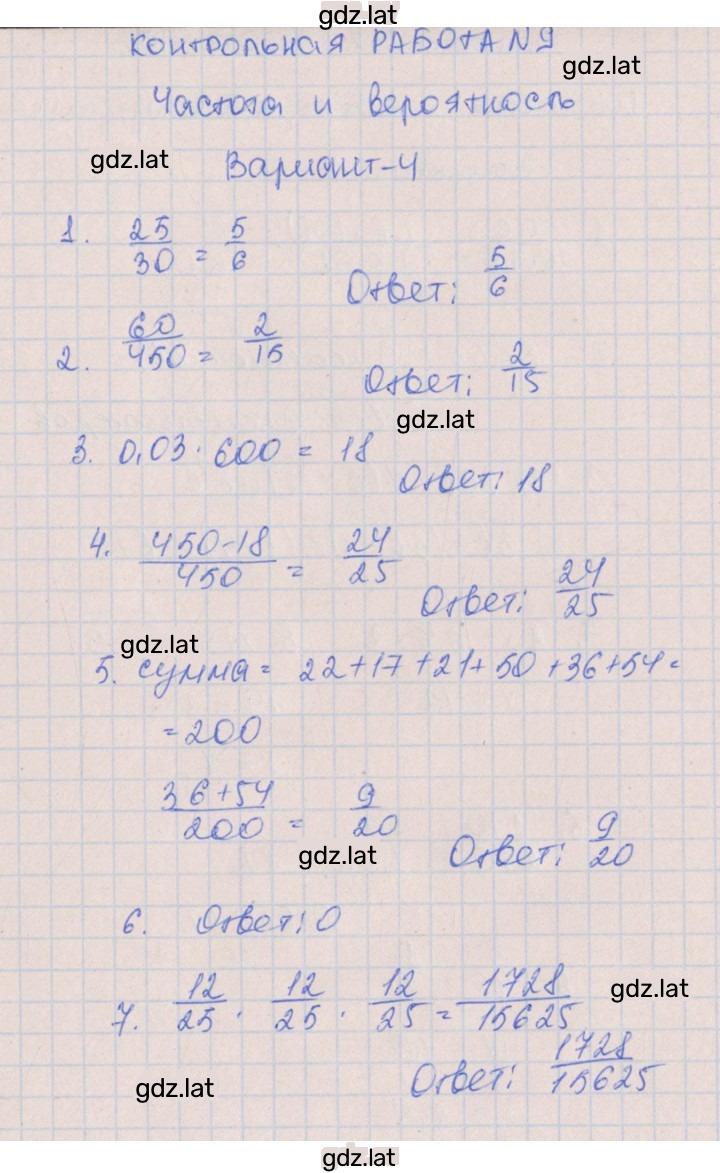 gdz.lat
КОНТРОЛЬНАЯ РАБОТА N 9
gdz.lat
Частота и вероятность
gdz.lat
Вариант-4
1. 25/30 = 5/6
Ответ: 5/6
2. 60/450 = 2/15
Ответ: 2/15
gdz.lat
3. 0,03 · 600 = 18
Ответ: 18
4. 450-18/450 = 24/25
Ответ: 24/25
gdz.lat
5. сумма = 22+17+21+50+36+54=
=200
36+54/200 = 9/20
gdz.lat
Ответ: 9/20
6. Ответ: 0
7. 12/25 · 12/25 · 12/25 = 1728/15625
gdz.lat
Ответ: 1728/15625
gdz.lat
gdz.lat